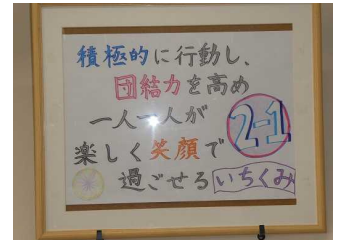 積極的に行動し、
団結力を高め
一人一人が
楽しく笑顔で
過ごせるいちくみ
2-1